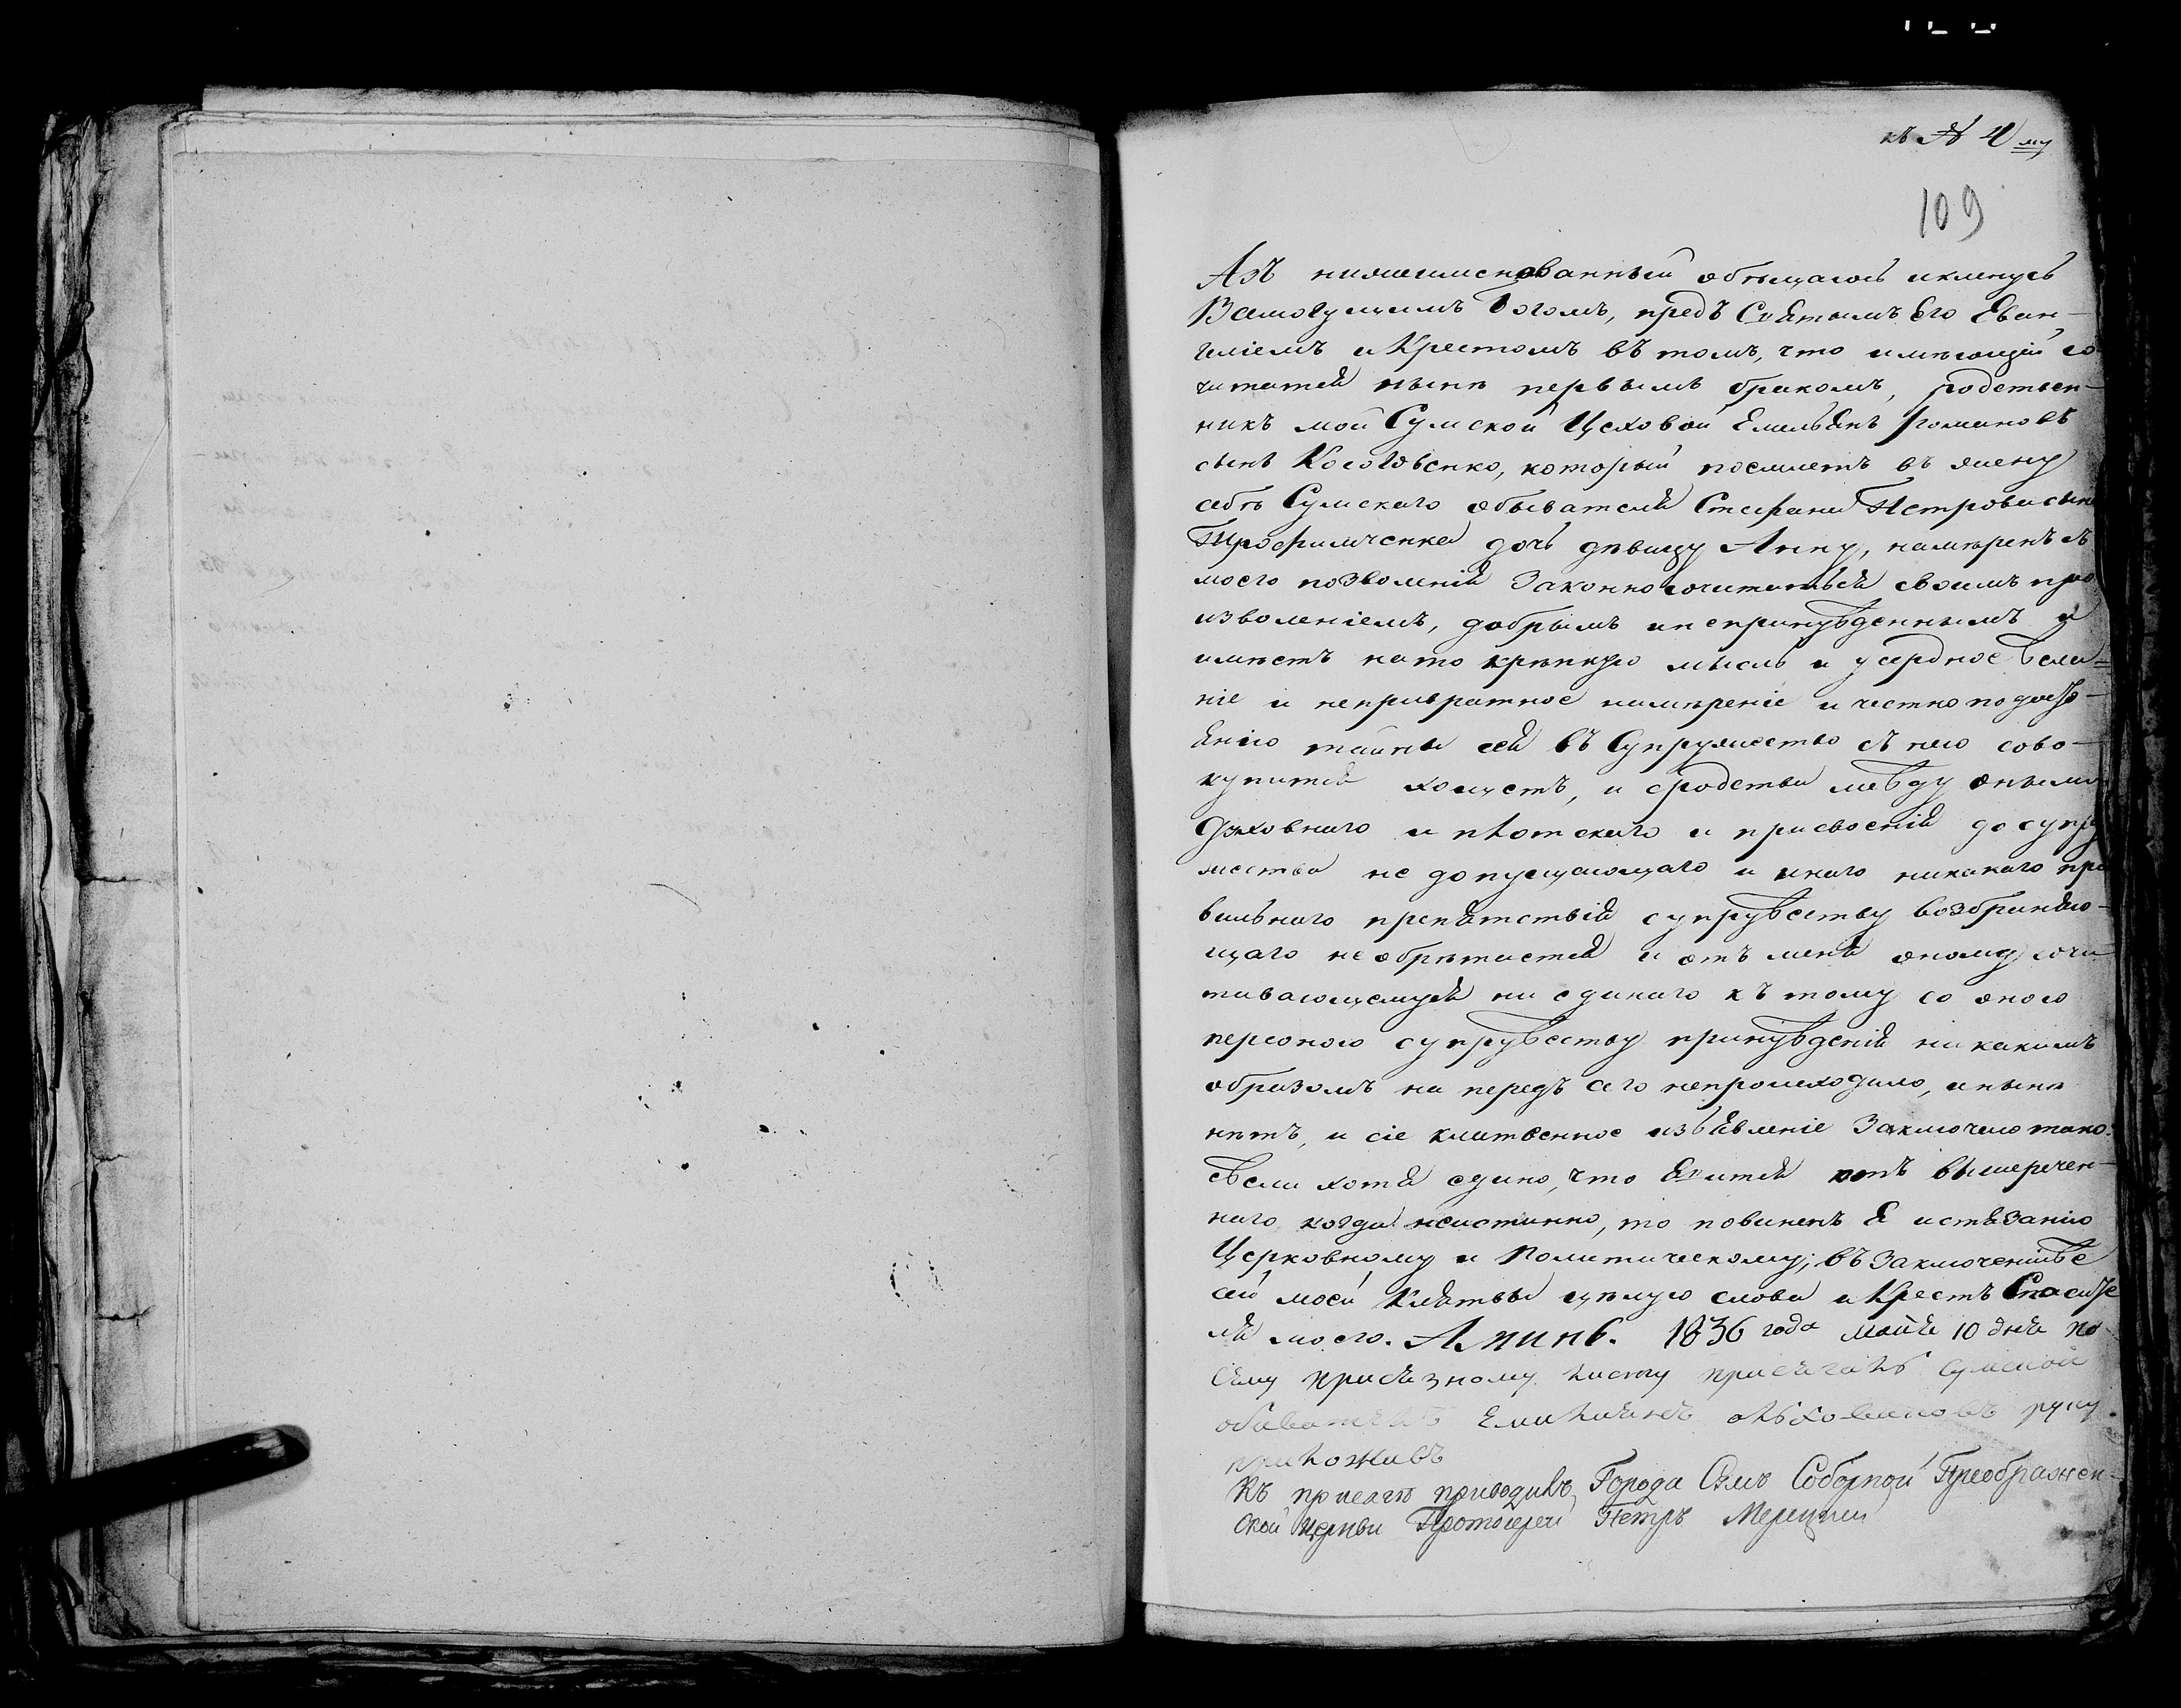 къ № 4му
109
Азъ нижеименованный обѣщаюсь и кленусь
Всемогущимъ Богомъ, предъ Святымъ Его Еван-
геліемъ и Крестомъ въ томъ, что имѣющій со-
читатся нынѣ первымъ бракомъ, родствен-
никъ мой Сумской Цеховой Емельянъ Романовъ
сынъ, который поемлетъ въ жену
себѣ Сумскаго обывателя Стефана Петрова сына
Трофимченка дочь дѣвицу Анну, намѣренъ съ
моего позволенія законно сочитаться своимъ про
изволеніемъ, добрымъ и непринужденнымъ и
имѣетъ на то крѣпкую мысль и усердное жела-
ніе и непривратное намѣреніе и честно по досто-
янію тайны сея въ Супружество съ нею сово-
купится хощетъ, и сродства между оными
Духовнаго и плотскаго и присвоенія до супру
жества не допущающаго и инаго никакаго пра
вильнаго препятствія супружеству возбраняю-
щаго не обрѣтается и отъ меня оному сочи
тавающемуся ни единаго къ тому со оною
персоною супружеству принужденія никакимъ
образомъ на передъ сего непроисходило, и нынѣ
нѣтъ, и сіе клятвенное изъявленіе Заключаю тако:
ежели хотя едино, что явится отъ вышеречен-
наго когда неистинно, то повиненъ я истязанію
Церковному и Политическому; въ заключеніиже
сей моей Клятвы цѣлую слова и Крестъ Спасите
ля моего. Аминь. 1836 года Маія 10 дня По
сему присяжному листу присягалъ сумской
обыватель Емилиянъ руку
приложивъ
Къ присягѣ приводилъ, Города Сумъ Соборной Преображен-
ской церкви Протоіерей Петръ